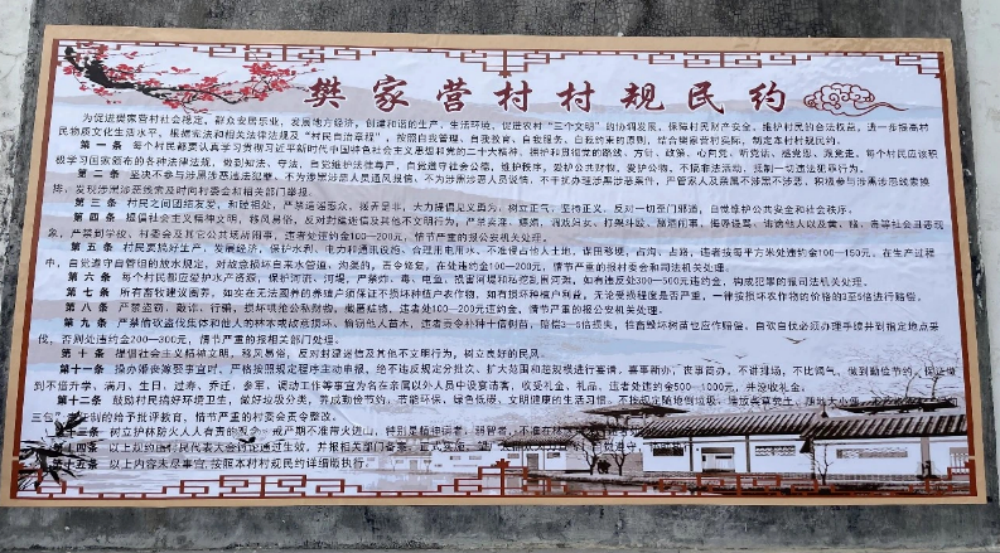 樊家营村村规民约
为促进樊家营村社会稳定，群众安居乐业，发展地方经济，创建和谐的生产、生活环境，促进农村“三个文明”的协调发展，保障村民财产安全，维护村民的合法权益，进一步提高村
民物质文化生活水平，根据宪法和相关法律法规及“村民自治章程”，按照自我管理、自我教育、自我服务、自我约束的原则，结合樊家营村实际，制定本村村规民约。
第一条 每个村民都要认真学习贯彻习近平新时代中国特色社会主义思想和党的二十大精神，拥护和贯彻党的路线、方针、政策，心向党、听党话、感党恩、跟党走。每个村民应该积
极学习国家颁布的各种法律法规，做到知法、守法，自觉维护法律尊严，自觉遵守社会公德，维护秩序，爱护公共财物，爱护公物，不搞非法活动，抵制一切违法犯罪行为。
第二条 坚决不参与涉黑涉恶违法犯罪、不为涉黑涉恶人员通风报信、不为涉黑涉恶人员说情，不干扰办理涉黑涉恶案件，严管家人及亲属不涉黑不涉恶、积极参与涉黑涉恶线索摸
排，发现涉黑涉恶线索及时向村委会和相关部门举报。
第三条 村民之间团结友爱，和睦相处，严禁造谣惑众，拨弄是非，大力提倡见义勇为，树立正气，坚持正义，反对一切歪门邪道，自觉维护公共安全和社会秩序。
第四条 提倡社会主义精神文明，移风易俗，反对封建迷信及其他不文明行为，严禁卖淫、嫖娼，调戏妇女、打架斗殴、酗酒闹事、侮辱诽谤、诬陷他人以及黄、赌、毒等社会丑恶现
象，严禁到学校、村委会及其它公共场所闹事，违者处违约金100—200元，情节严重的报公安机关处理。
第五条 村民要搞好生产，发展经济，保护水利、电力和通讯设施、合理用电用水，不准侵占他人土地，谋田移埂，占沟、占路，违者按每平方米处违约金100—150元。在生产过程
中，自觉遵守自管组的放水规定，对故意损坏自来水管道、沟渠的，责令修复，在处违约金100—200元，情节严重的报村委会和司法机关处理。
第六条 每个村民都应爱护水产资源，保护河流、河堤，严禁炸、毒、电鱼、损害河堤和私挖乱围河滩，如有违反处300—500元违约金，构成犯罪的报司法机关处理。
第七条 所有畜牧建议圈养，如实在无法圈养的养殖户须保证不损坏种植户农作物，如有损坏种植户利益，无论受损程度是否严重，一律按损坏农作物的价格的3至5倍进行赔偿。
第八条 严禁盗窃、敲诈、行骗，损坏哄抢公私财物，藏匿赃物，违者处100—200元违约金，情节严重的报公安机关处理。
第九条 严禁偷砍滥伐集体和他人的林木或故意损坏、偷窃他人苗木，违者责令补种十倍树苗，赔偿3—5倍损失，牲畜毁坏树苗也应作赔偿。自砍自伐必须办理手续并到指定地点采
伐，否则处违约金200—300元，情节严重的报相关部门处理。
第十条 提倡社会主义精神文明，移风易俗，反对封建迷信及其他不文明行为，树立良好的民风。
第十一条 操办婚丧嫁娶事宜时，严格按照规定程序主动申报，绝不违反规定分批次、扩大范围和超规模进行宴请。喜事新办，丧事简办，不讲排场，不比阔气，做到勤俭节约，保证做
到不借升学、满月、生日、过寿、乔迁、参军、调动工作等事宜为名在亲属以外人员中设宴请客，收受礼金、礼品，违者处违约金500—1000元，并没收礼金。
第十二条 鼓励村民搞好环境卫生，做好垃圾分类，养成勤俭节约、节能环保、绿色低碳、文明健康的生活习惯。不按规定随地倒垃圾，堆放柴草粪土，随地大小便，
三包”责任制的给予批评教育，情节严重的村委会责令整改。
第十三条 树立护林防火人人有责的观念，戒严期不准带火进山，特别是精神病者、弱智者，不准在林
第十四条 以上规约由村民代表大会讨论通过生效，并报相关部门备案，正式实施，望
第十五条 以上内容未尽事宜，按照本村村规民约详细版执行。